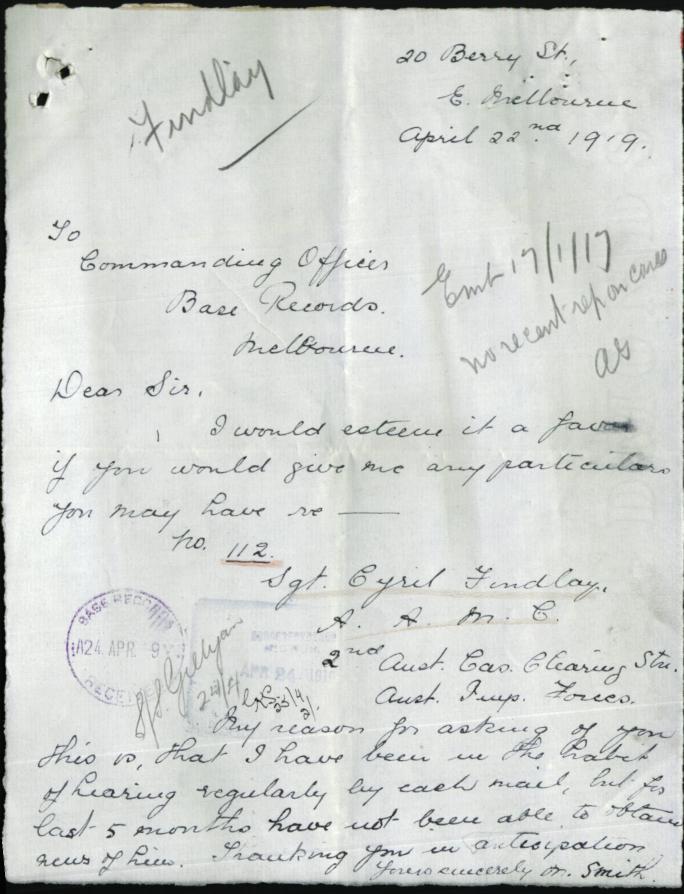 Findlay
20 Berry St.,
E. Melbourne
April 22nd. 1919.
To
Commanding Officer
Base Records.
Melbourne.
Emb 17/1/17
no recent rep on
as
Dear Sir,
I would esteem it a favour
if you would give me any particulars
you may have re —
No. 112.
Sgt. Cyril Findlay,
A. A. M. C.
2nd Aust. Cas. Clearing Stn.
Aust. Imp. Forces.
BASE RECORDS
24 APR. 9
RECEIVED
APR 24 191
My reason for asking of you
this is, that I have been in the habit
of hearing regularly by each mail, but for
last 5 months have not been able to obtain
news of him. Thanking you in anticipation
Yours sincerely M. Smith.